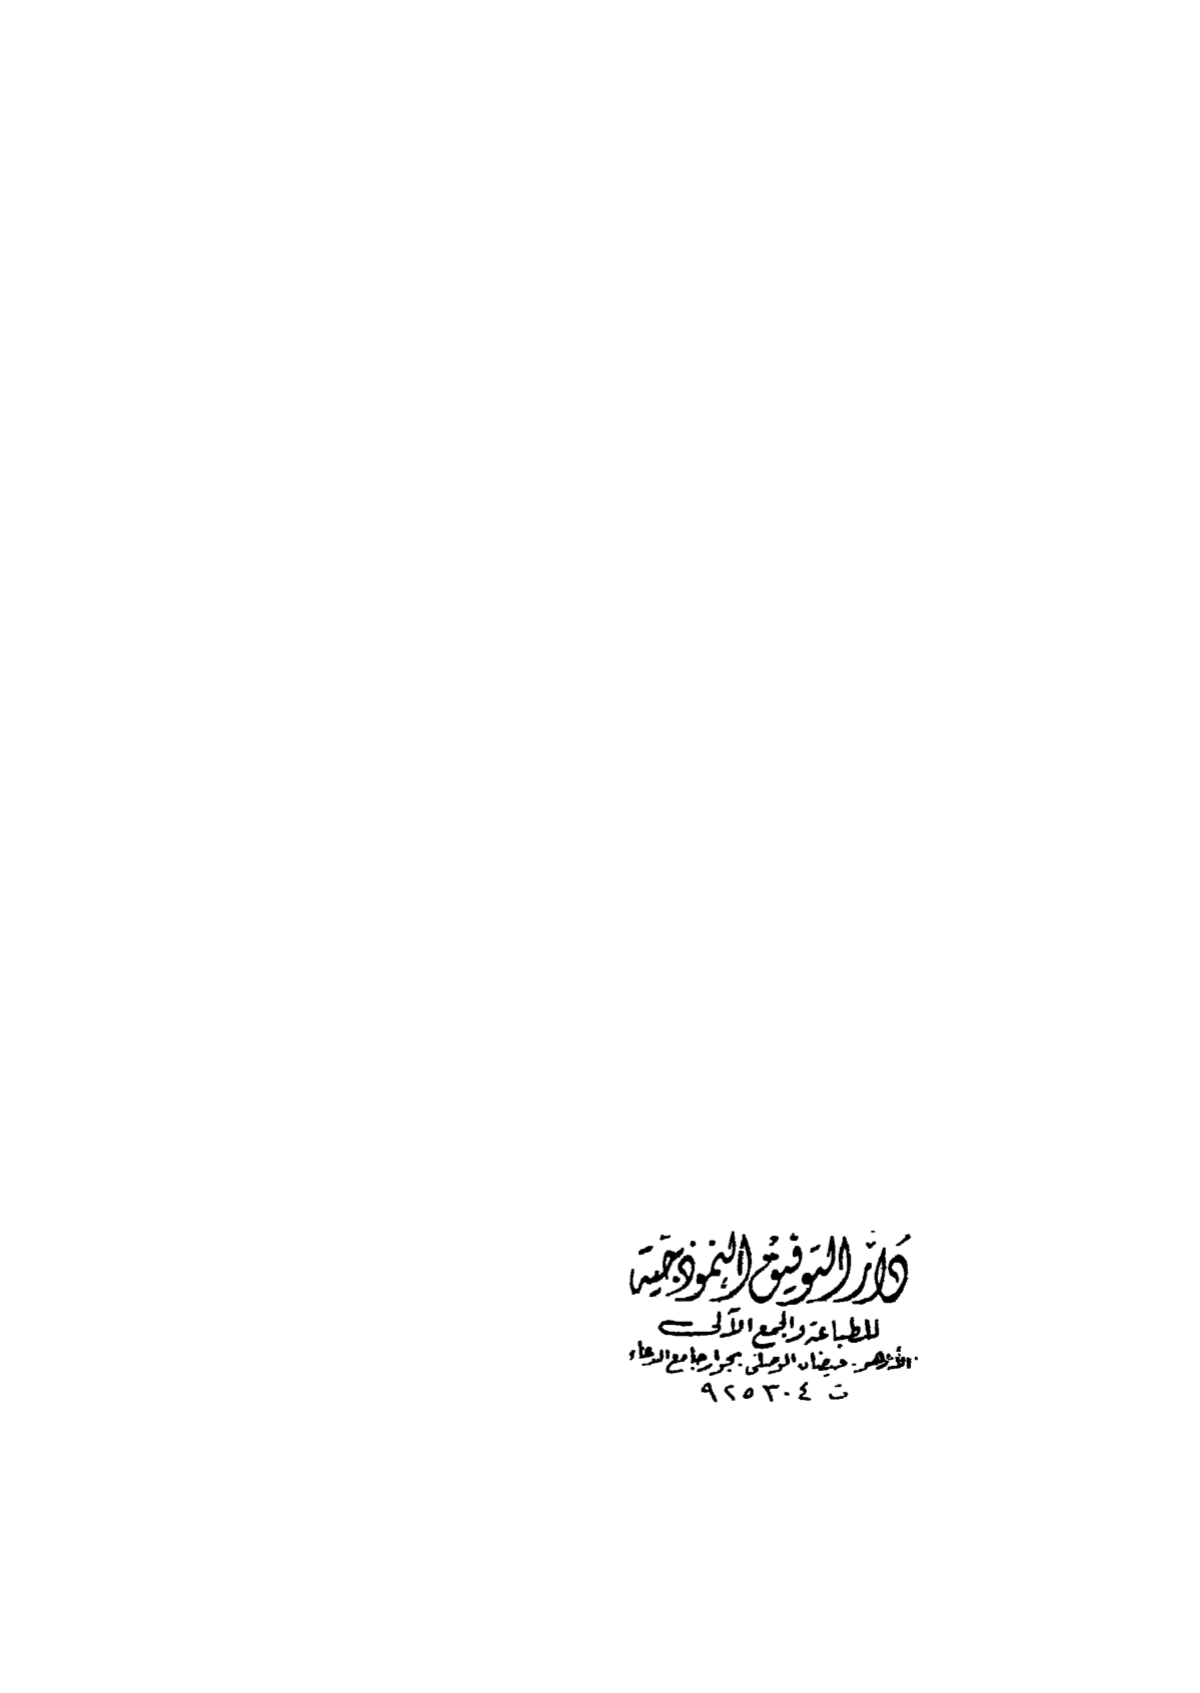 دار التوفيق النموذجية
للطباعة والجمع الآلى
الأزهر. حيضان الموصلى بجوار جامع الدعاء
ت ٩٢٥٣٠٤